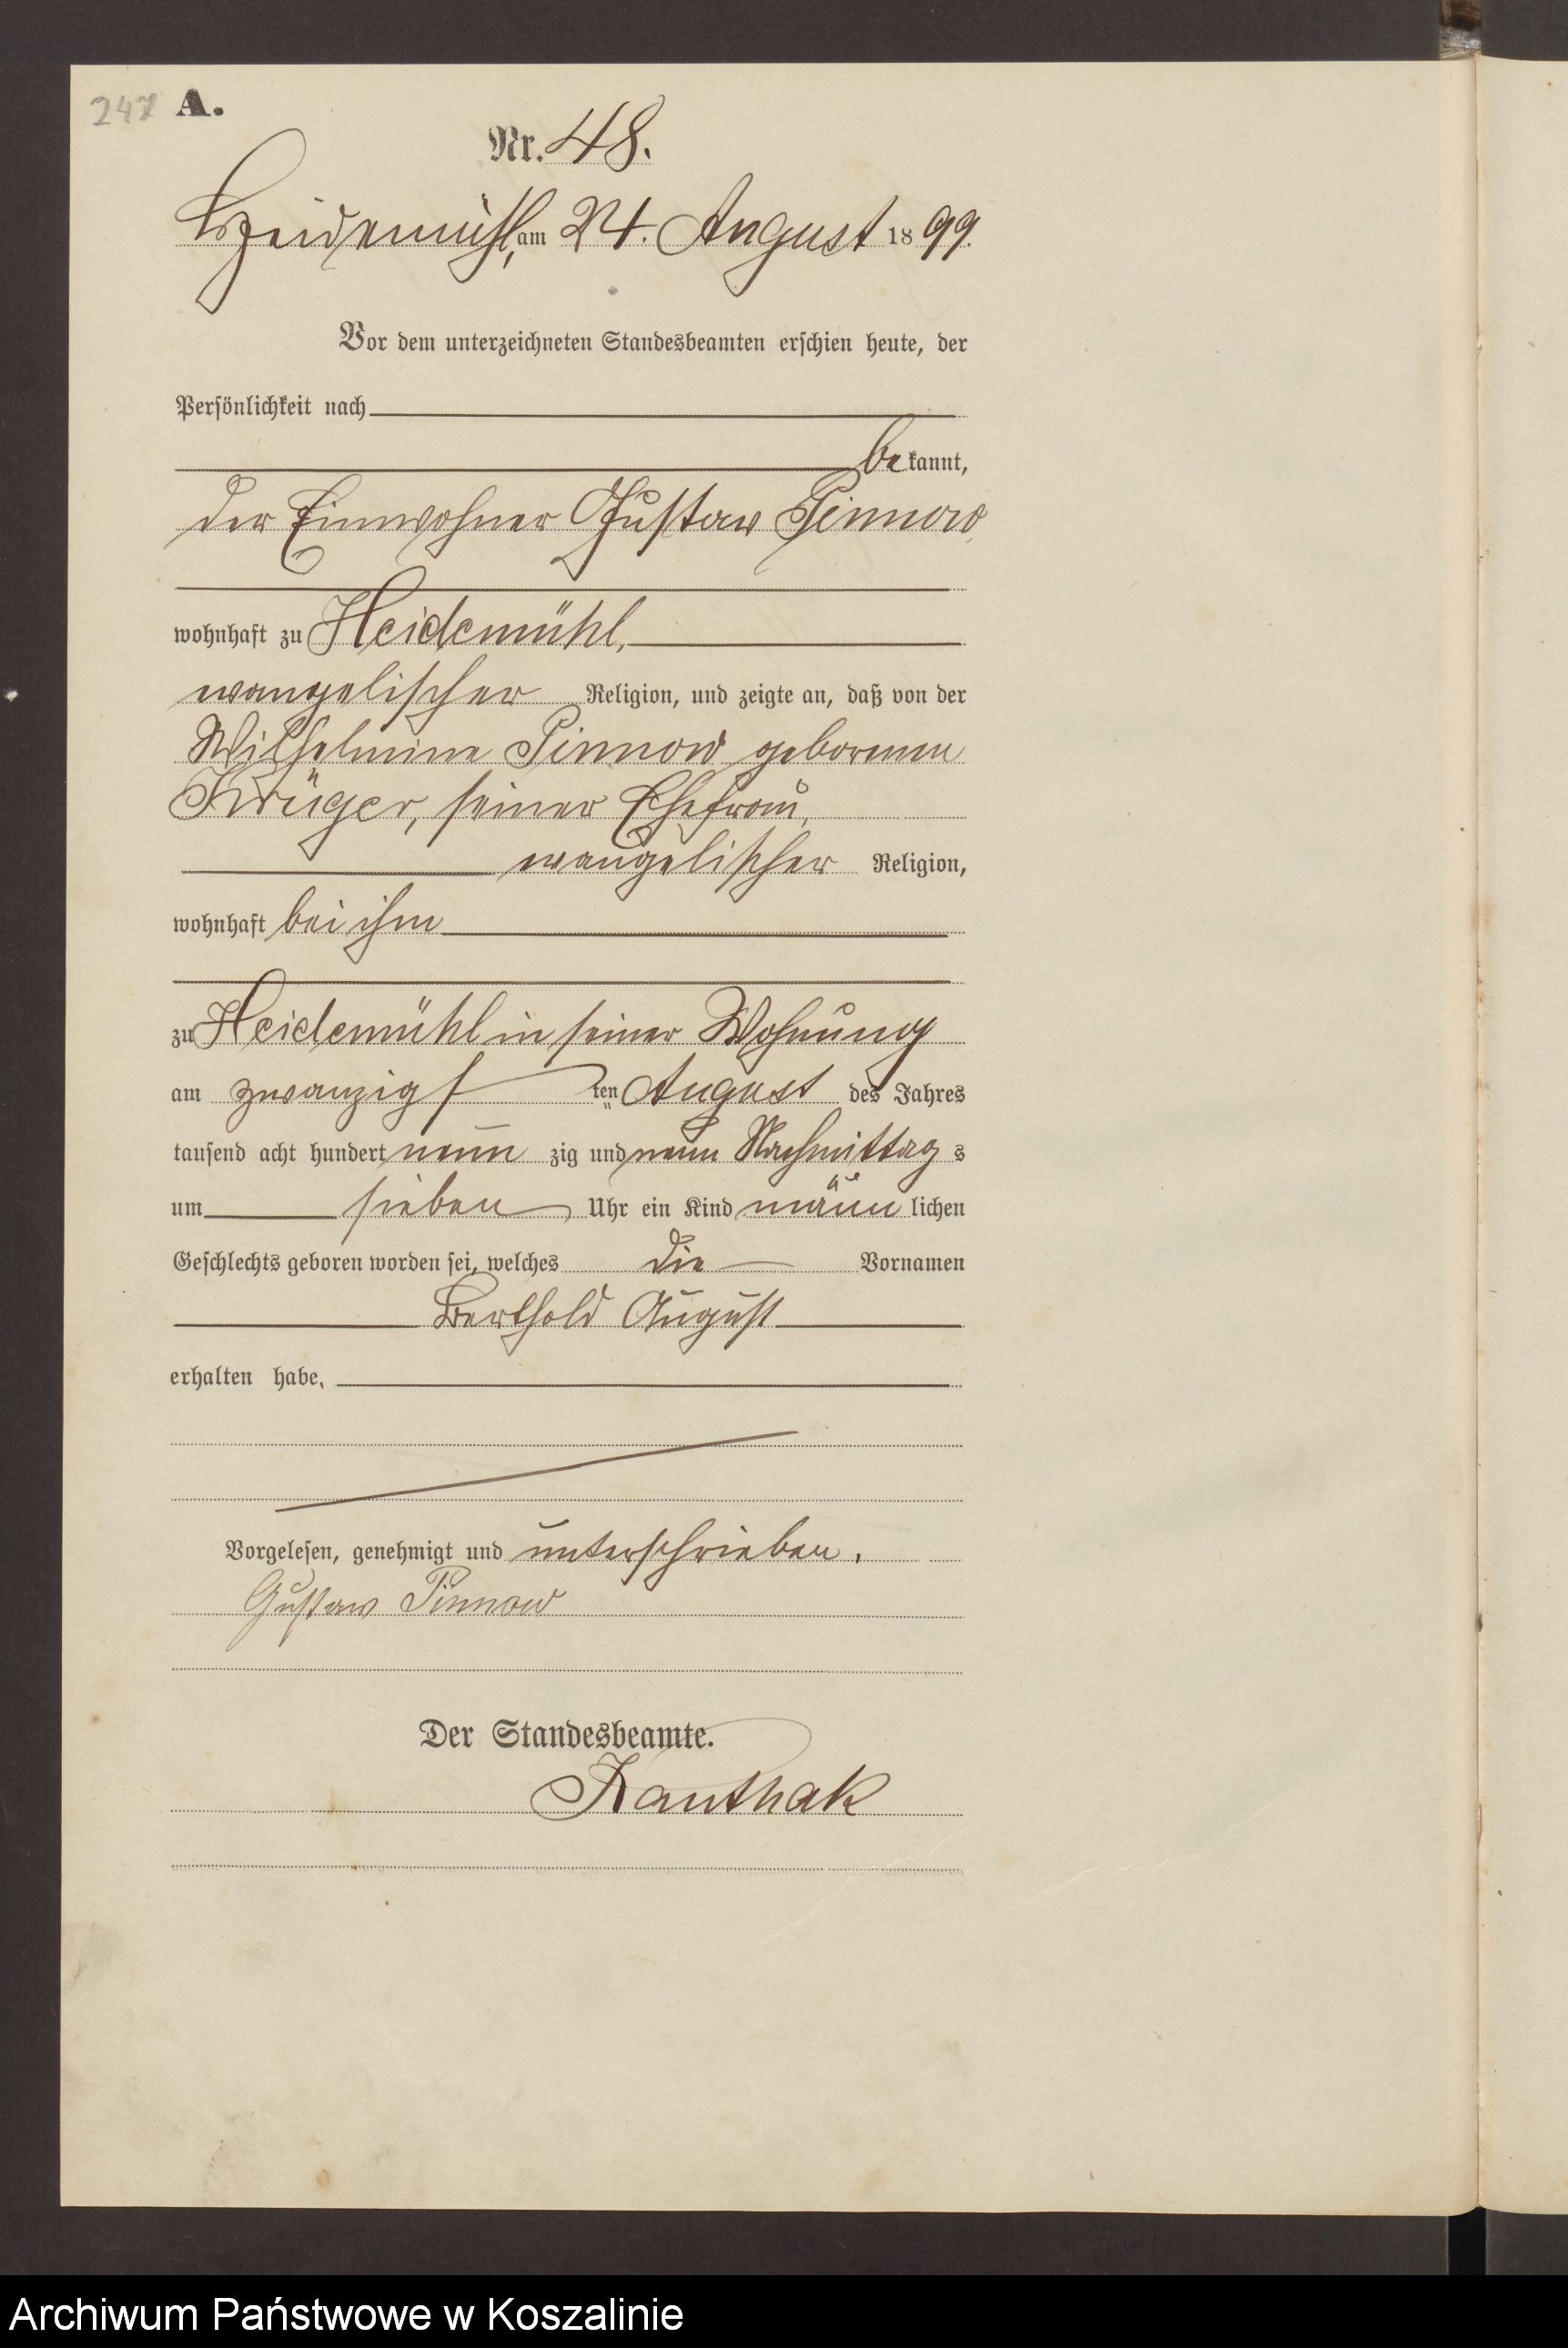 247 A.
Nr. 48.
Heidemühl, am 24. August 1899.
Vor dem unterzeichneten Standesbeamten erschien heute, der
Persönlichkeit nach
bekannt,
der Einwohner Gustav Pinnow,
wohnhaft zu Heidemühl,
evangelischer Religion, und zeigte an, daß von der
Wilhelmine Pinnow geborenen
Krüger, seiner Ehefrau,
evangelischer Religion,
wohnhaft bei ihm
zu Heidemühl in seiner Wohnung
am zwanzigsten August des Jahres
tausend acht hundert neunzig und neun Nachmittags
um sieben Uhr ein Kind männlichen
Geschlechts geboren worden sei, welches die Vornamen
Berthold August
erhalten habe.
Vorgelesen, genehmigt und unterschrieben.
Gustav Pinnow
Der Standesbeamte.
Kauthak
Archiwum Państwowe w Koszalinie